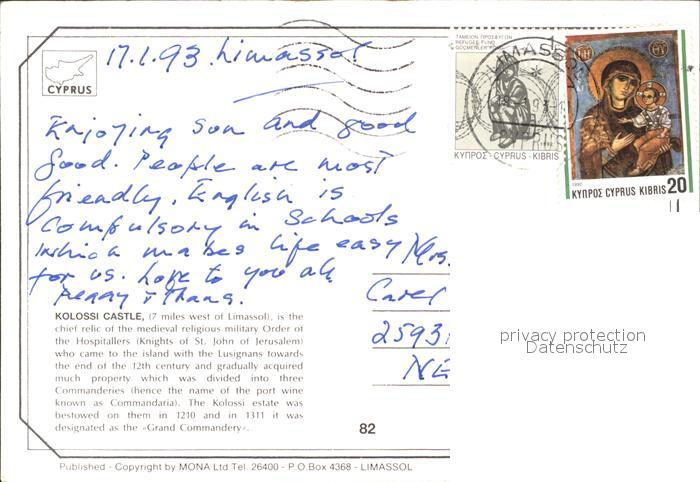 17.1.93. Limassol
CYPRUS
Enjoying sun and good
food. People are most
friendly. English is
Compulsory in Schools
which makes life easy
for us. Love to you all
Peggy & Thang.
KOLOSSI CASTLE, (7 miles west of Limassol), is the
chief relic of the medieval religious military Order of
the Hospitallers (Knights of St. John of Jerusalem)
who came to the island with the Lusignans towards
the end of the 12th century and gradually acquired
much property which was divided into three
Commanderies (hence the name of the port wine
known as Commandaria). The Kolossi estate was
bestowed on them in 1210 and in 1311 it was
designated as the «Grand Commandery».
82
Published - Copyright by MONA Ltd Tel. 26400 - P.O.Box 4368 - LIMASSOL
ΤΑΜΕΙΟΝ ΠΡΟΣΦΥΓΩΝ
REFUGEE FUND
GÖÇMENLER FONU
ΚΥΠΡΟΣ·CYPRUS·KIBRIS
1990
ΚΥΠΡΟΣ CYPRUS KIBRIS 20
Mrs.
Carel
2593
NE
privacy protection
Datenschutz